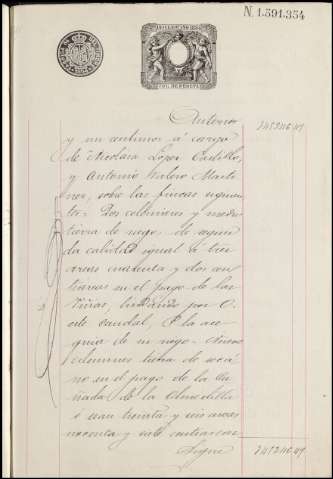 N. 1.591.354
Anterior
y un centimos á cargo
de Nicolasa Lopez Castillo,
y Antonio Valero Marti
nez, sobre las fincas siguien
tes. Dos celemines y medio
tierra de riego, de segun
da calidad igual á tres
areas cuarenta y dos cen
tiareas en el pago de las
Viñas, lindando por O.
este caudal, P. la ace
quia de su riego. Nueve
celemines tierra de seca
no en el pago de la Ca
ñada de la
ó sean treinta y seis areas
noventa y siete centiareas
Sigue